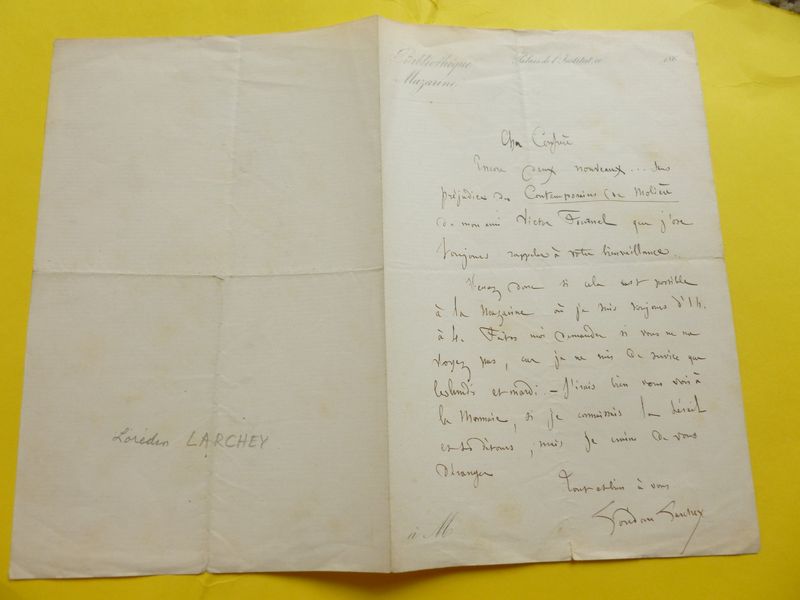 Bibliothèque
Mazarine.
Palais de l'Institut, le
186
Cher Confrère
Encore deux nouveaux ... sans
préjudice des Contemporains de Molière
de mon ami Victor Fournel que j'ose
toujours rappeler à votre bienveillance.
Venez donc si cela est possible
à la Mazarine où je suis toujours d'1 h.
à 4. Faites moi demander si vous ne me
voyez pas, car je ne suis de service que
les lundi et mardi. – J'irais bien vous voir à
la Monnaie, si je connaissais le
et ses détours, mais je crains de vous
déranger
Tout à vous
Lorédan Larchey
à M
Lorédan LARCHEY